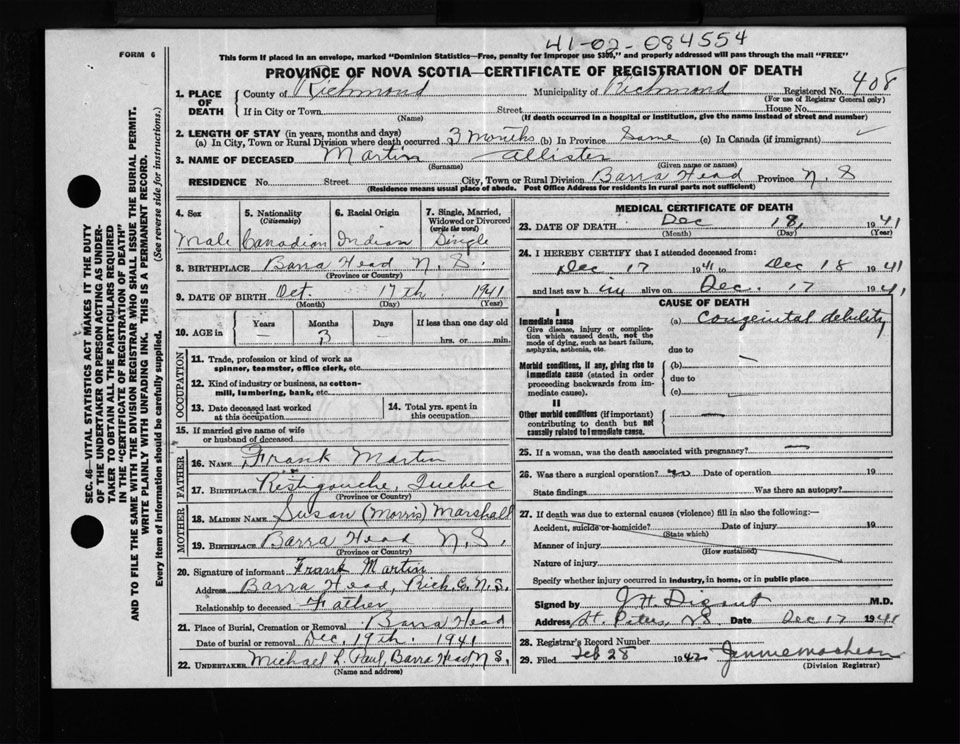 41-02-084554
FORM 6
This form if placed in an envelope, marked "Dominion Statistics—Free, penalty for improper use $300," and properly addressed will pass through the mail "FREE"
PROVINCE OF NOVA SCOTIA—CERTIFICATE OF REGISTRATION OF DEATH
1. PLACE OF DEATH County of Richmond Municipality of Richmond Registered No. 408
(For use of Registrar General only)
If in City or Town Street House No.
(Name) (If death occurred in a hospital or institution, give the name instead of street and number)
2. LENGTH OF STAY (in years, months and days)
(a) In City, Town or Rural Division where death occurred 3 months (b) In Province Same (c) In Canada (if immigrant)
3. NAME OF DECEASED Martin Allister
(Surname) (Given name or names)
RESIDENCE No. Street City, Town or Rural Division Barra Head Province N. S
(Residence means usual place of abode. Post Office Address for residents in rural parts not sufficient)
4. Sex 5. Nationality (Citizenship) 6. Racial Origin 7. Single, Married, Widowed or Divorced (write the word)
Male Canadian Indian Single
8. BIRTHPLACE Barra Head N. S.
(Province or Country)
9. DATE OF BIRTH Oct. 17th 1941
(Month) (Day) (Year)
10. AGE in Years Months Days If less than one day old
— 3 — hrs. or min.
OCCUPATION
11. Trade, profession or kind of work as spinner, teamster, office clerk, etc
12. Kind of industry or business, as cotton-mill, lumbering, bank, etc
13. Date deceased last worked at this occupation
14. Total yrs. spent in this occupation
15. If married give name of wife or husband of deceased
FATHER
16. NAME Frank Martin
17. BIRTHPLACE Restigouche, Quebec
(Province or Country)
MOTHER
18. MAIDEN NAME Susan (Morris) Marshall
19. BIRTHPLACE Barra Head N. S.
(Province or Country)
20. Signature of informant Frank Martin
Address Barra Head, Rich. C. N. S.
Relationship to deceased Father
21. Place of Burial, Cremation or Removal Barra Head
Date of burial or removal Dec. 19th. 1941
22. UNDERTAKER Michael L. Paul, Barra Head N S,
(Name and address)
MEDICAL CERTIFICATE OF DEATH
23. DATE OF DEATH Dec 18, 1941
(Month) (Day) (Year)
24. I HEREBY CERTIFY that I attended deceased from:
Dec 17 1941 to Dec 18 1941
and last saw him alive on Dec. 17 1941,
CAUSE OF DEATH
I
Immediate cause
Give disease, injury or complication which caused death, not the mode of dying, such as heart failure, asphyxia, asthenia, etc.
(a) Congenital debility
due to
Morbid conditions, if any, giving rise to immediate cause (stated in order proceeding backwards from immediate cause).
(b) —
due to
(c)
II
Other morbid conditions (if important) contributing to death but not causally related to immediate cause.
—
25. If a woman, was the death associated with pregnancy? —
26. Was there a surgical operation? no Date of operation 19
State findings Was there an autopsy?
27. If death was due to external causes (violence) fill in also the following:—
Accident, suicide or homicide? Date of injury 19
(State which)
Manner of injury
(How sustained)
Nature of injury
Specify whether injury occurred in industry, in home, or in public place
Signed by J. H. Digout M.D.
Address St. Peters, N.S. Date Dec 17 1941
28. Registrar's Record Number
29. Filed Feb 28 1942
(Division Registrar)
SEC. 46—VITAL STATISTICS ACT MAKES IT THE DUTY
OF THE UNDERTAKER OR PERSON ACTING AS UNDER-
TAKER TO OBTAIN ALL THE PARTICULARS REQUIRED
IN THE "CERTIFICATE OF REGISTRATION OF DEATH"
AND TO FILE THE SAME WITH THE DIVISION REGISTRAR WHO SHALL ISSUE THE BURIAL PERMIT.
WRITE PLAINLY WITH UNFADING INK. THIS IS A PERMANENT RECORD.
Every item of information should be carefully supplied. (See reverse side for instructions.)